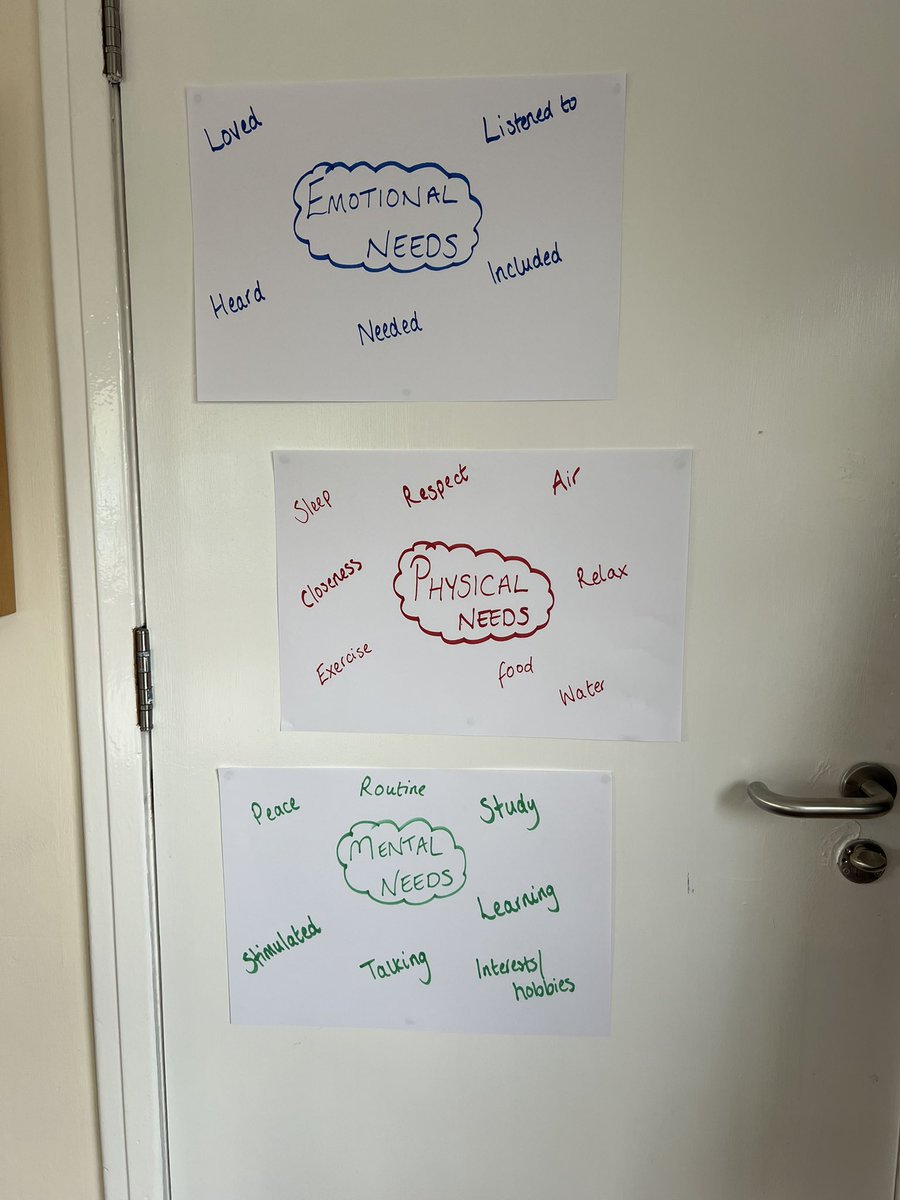 Loved
Listened to
EMOTIONAL
NEEDS
Heard
Needed
Included
Sleep
Respect
Air
Closeness
PHYSICAL
NEEDS
Relax
Exercise
food
Water
Peace
Routine
Study
MENTAL
NEEDS
Learning
Stimulated
Talking
Interests/
hobbies